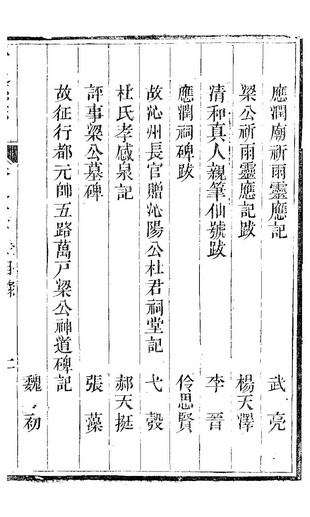 應潤廟祈雨靈應記 武亮
梁公祈雨靈應記跋 楊天澤
清和真人親筆仙號跋 李晉
應潤祠碑跋 伶思賢
故沁州長官贈沁陽公杜君祠堂記 弋彀
杜氏孝感泉記 郝天挺
評事梁公墓碑 張藻
故征行都元帥五路萬戸梁公神道碑記 魏初